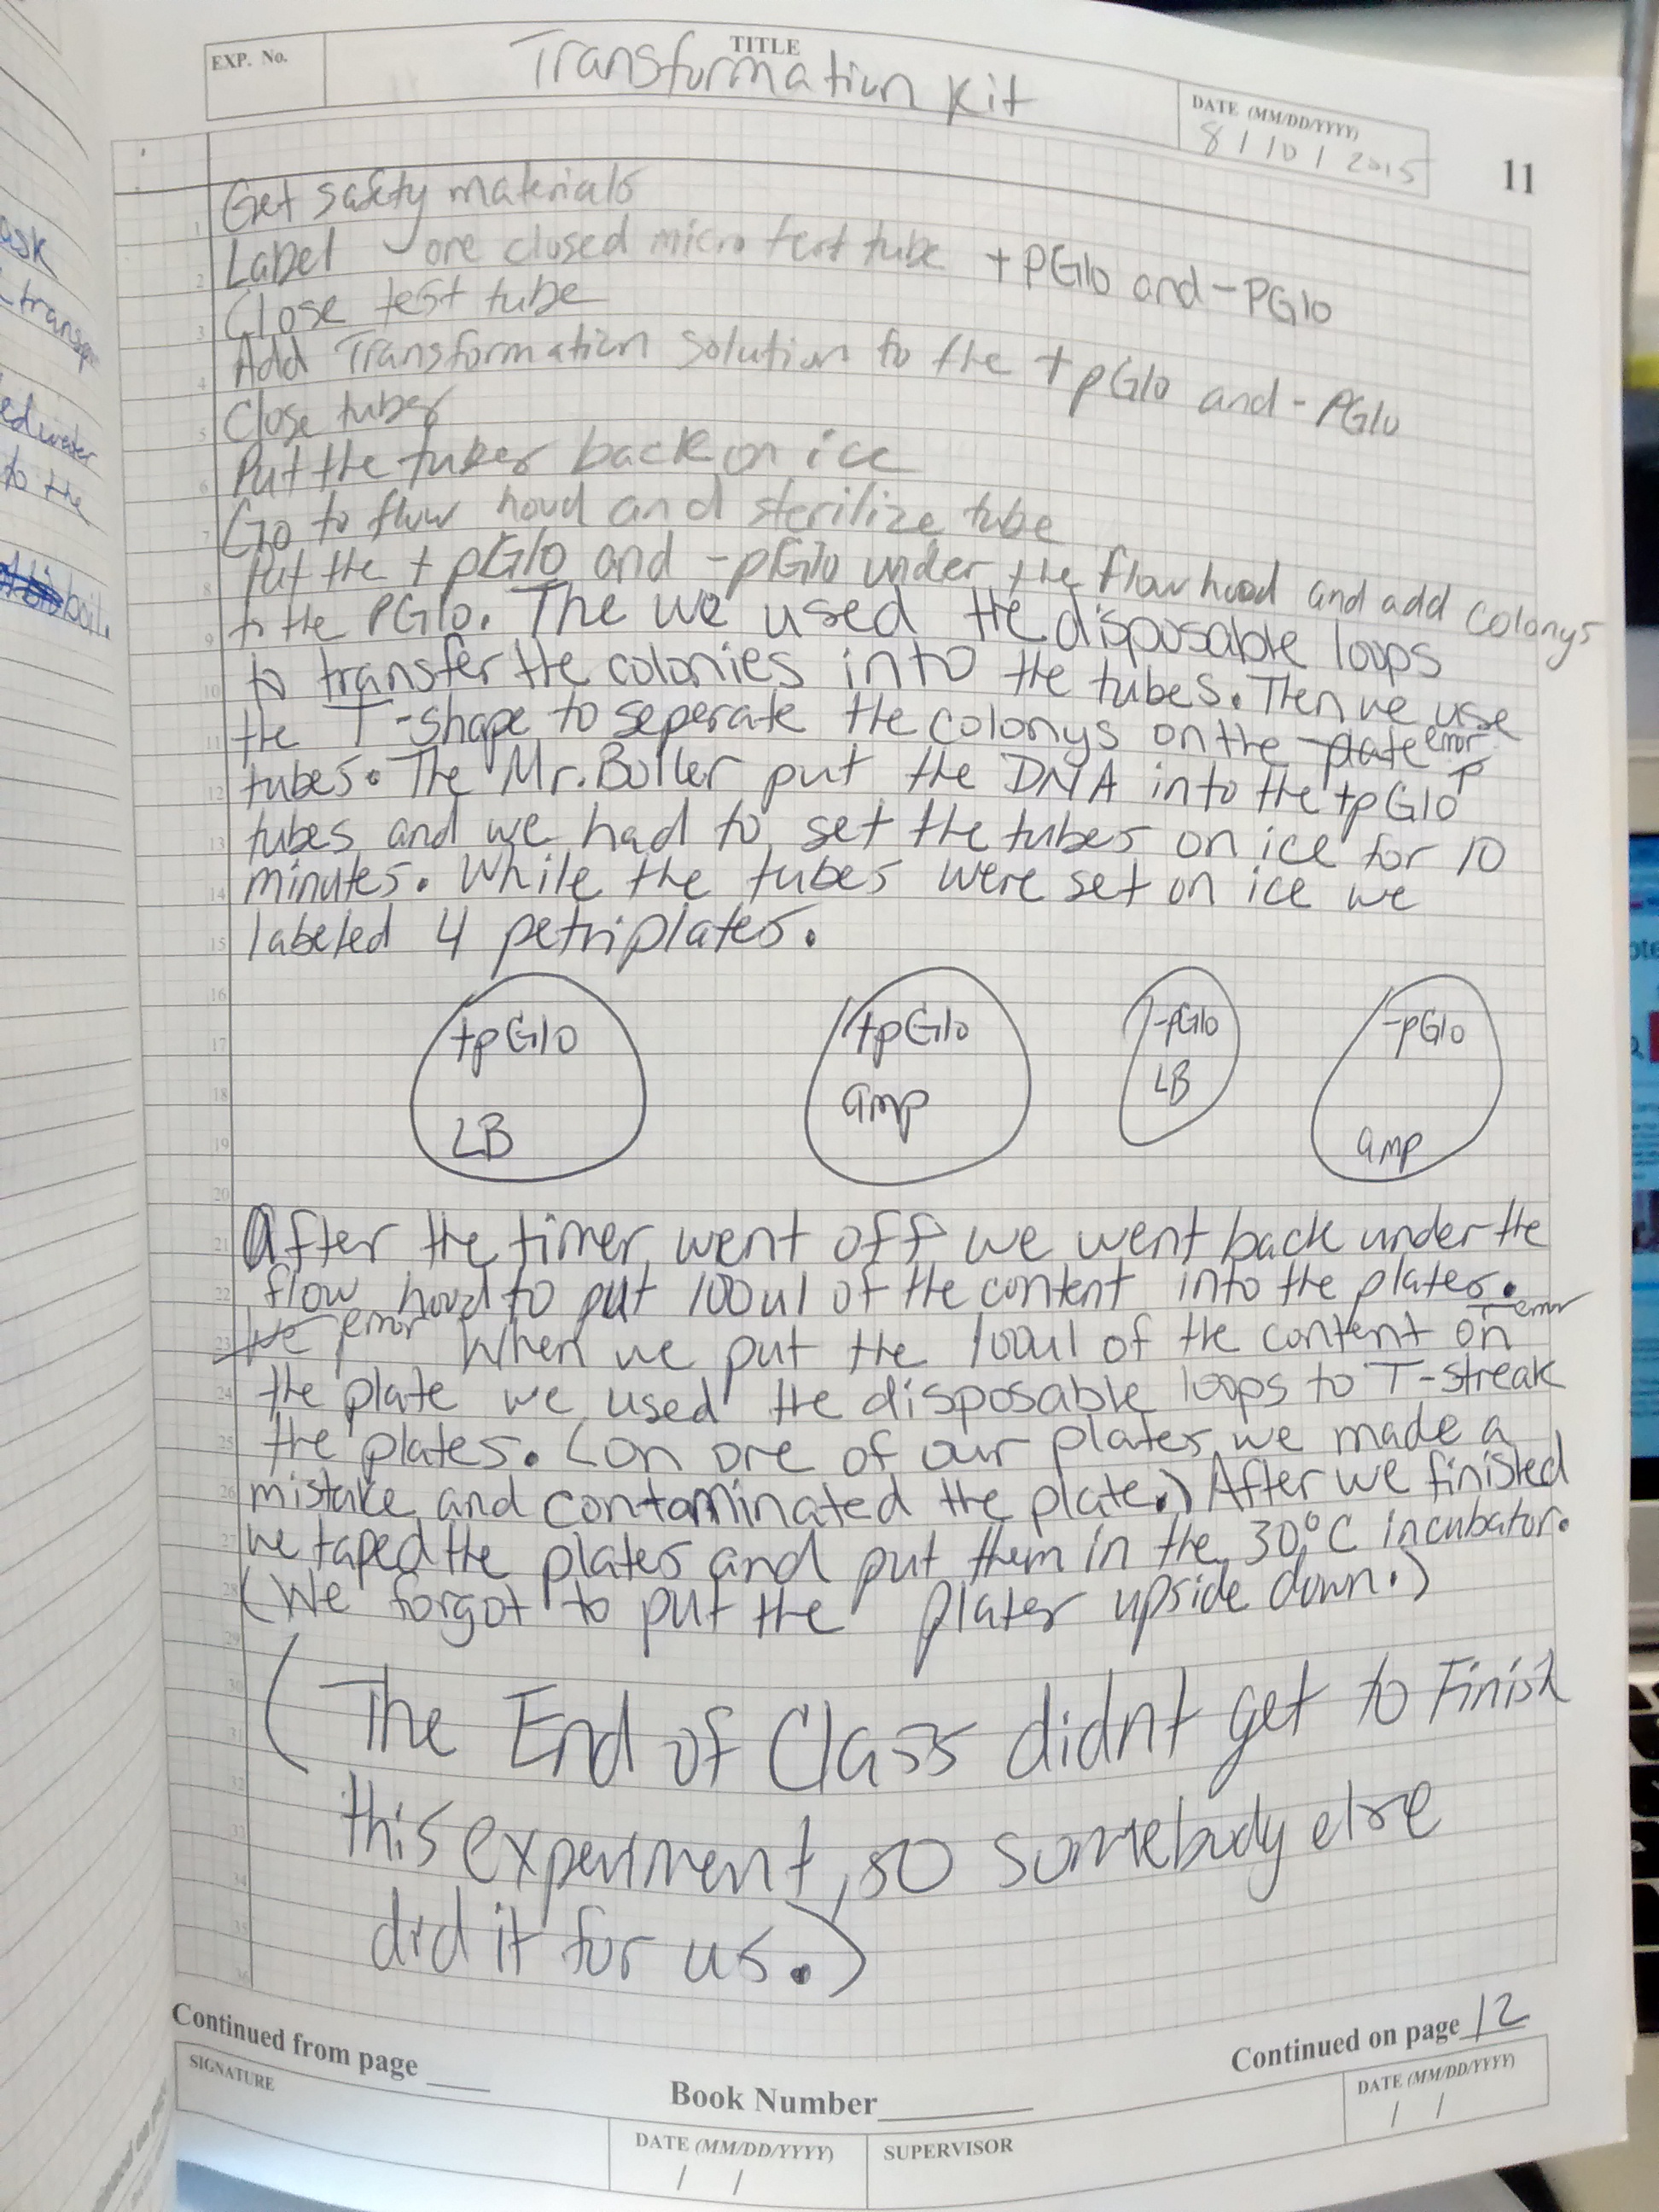 EXP. No.
TITLE
Transformation Kit
DATE (MM/DD/YYYY)
8 / 10 / 2015
11
1 Get safety materials
2 Label one closed micro test tube +pGlo and -PGlo
3 Close test tube
4 Add Transformation solution to the +pGlo and -PGlo
5 Close tubes
6 Put the tubes back on ice
7 Go to flow hood and sterilize tube
8 Put the +pGlo and -pGlo under the flow hood and add colonys
9 to the PGlo. The we used the disposable loops
10 to transfer the colonies into the tubes. Then we use
11 the T-shape to seperate the colonys on the plate error
12 tubes. The Mr. Boller put the DNA into the +pGlo
13 tubes and we had to set the tubes on ice for 10
14 minutes. While the tubes were set on ice we
15 labeled 4 petriplates.
16
17 +pGlo +pGlo -pGlo -pGlo
18 amp LB
19 LB amp
20
21 After the timer went off we went back under the
22 flow hood to put 100ul of the content into the plates.
23 We error When we put the 100ul of the content on error
24 the plate we used the disposable loops to T-streak
25 the plates. (on one of our plates we made a
26 mistake and contaminated the plate.) After we finished
27 we taped the plates and put them in the 30°C incubator.
28 (We forgot to put the plates upside down.)
29
30 (The End of Class didnt get to Finish
31
32
33 this experiment, so somebody else
34
35 did it for us.)
36
Continued from page
Continued on page 12
SIGNATURE
Book Number
DATE (MM/DD/YYYY)
/ /
DATE (MM/DD/YYYY)
/ /
SUPERVISOR
ask
edwater
to the
boil.